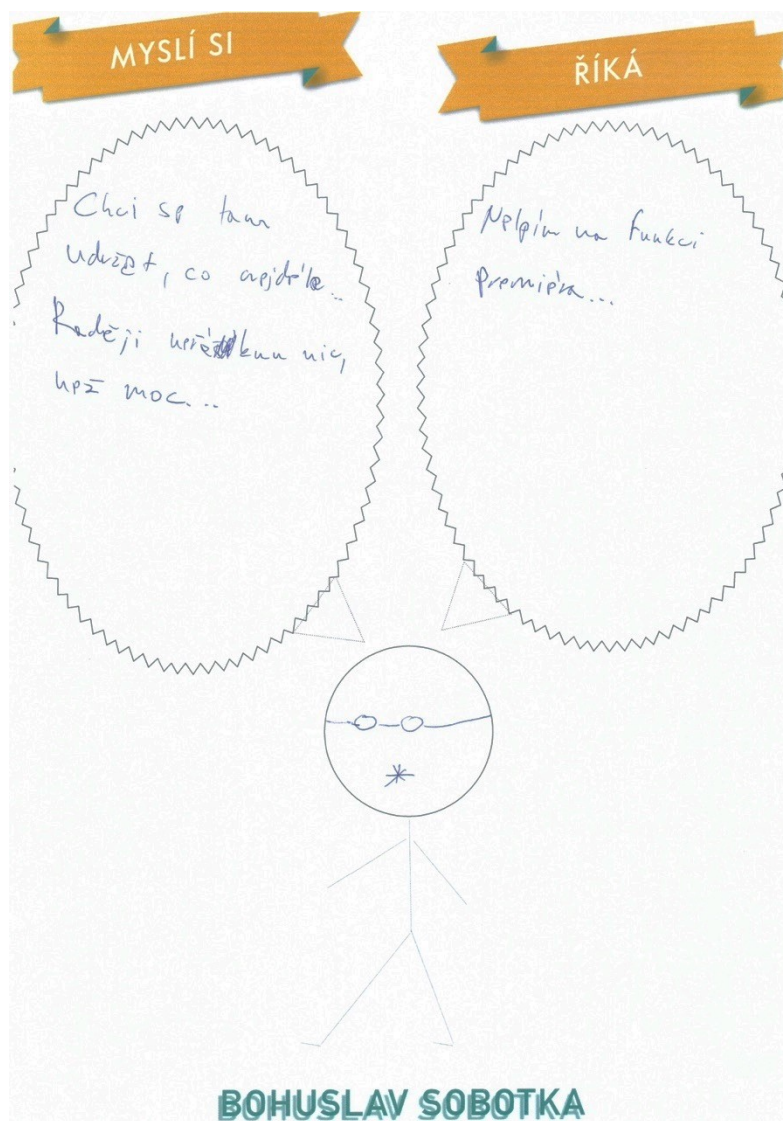 MYSLÍ SI
ŘÍKÁ
Chci se tam
udržet, co nejdéle...
Raději neřeknu nic,
než moc...
Nelpím na funkci
premiéra...
BOHUSLAV SOBOTKA